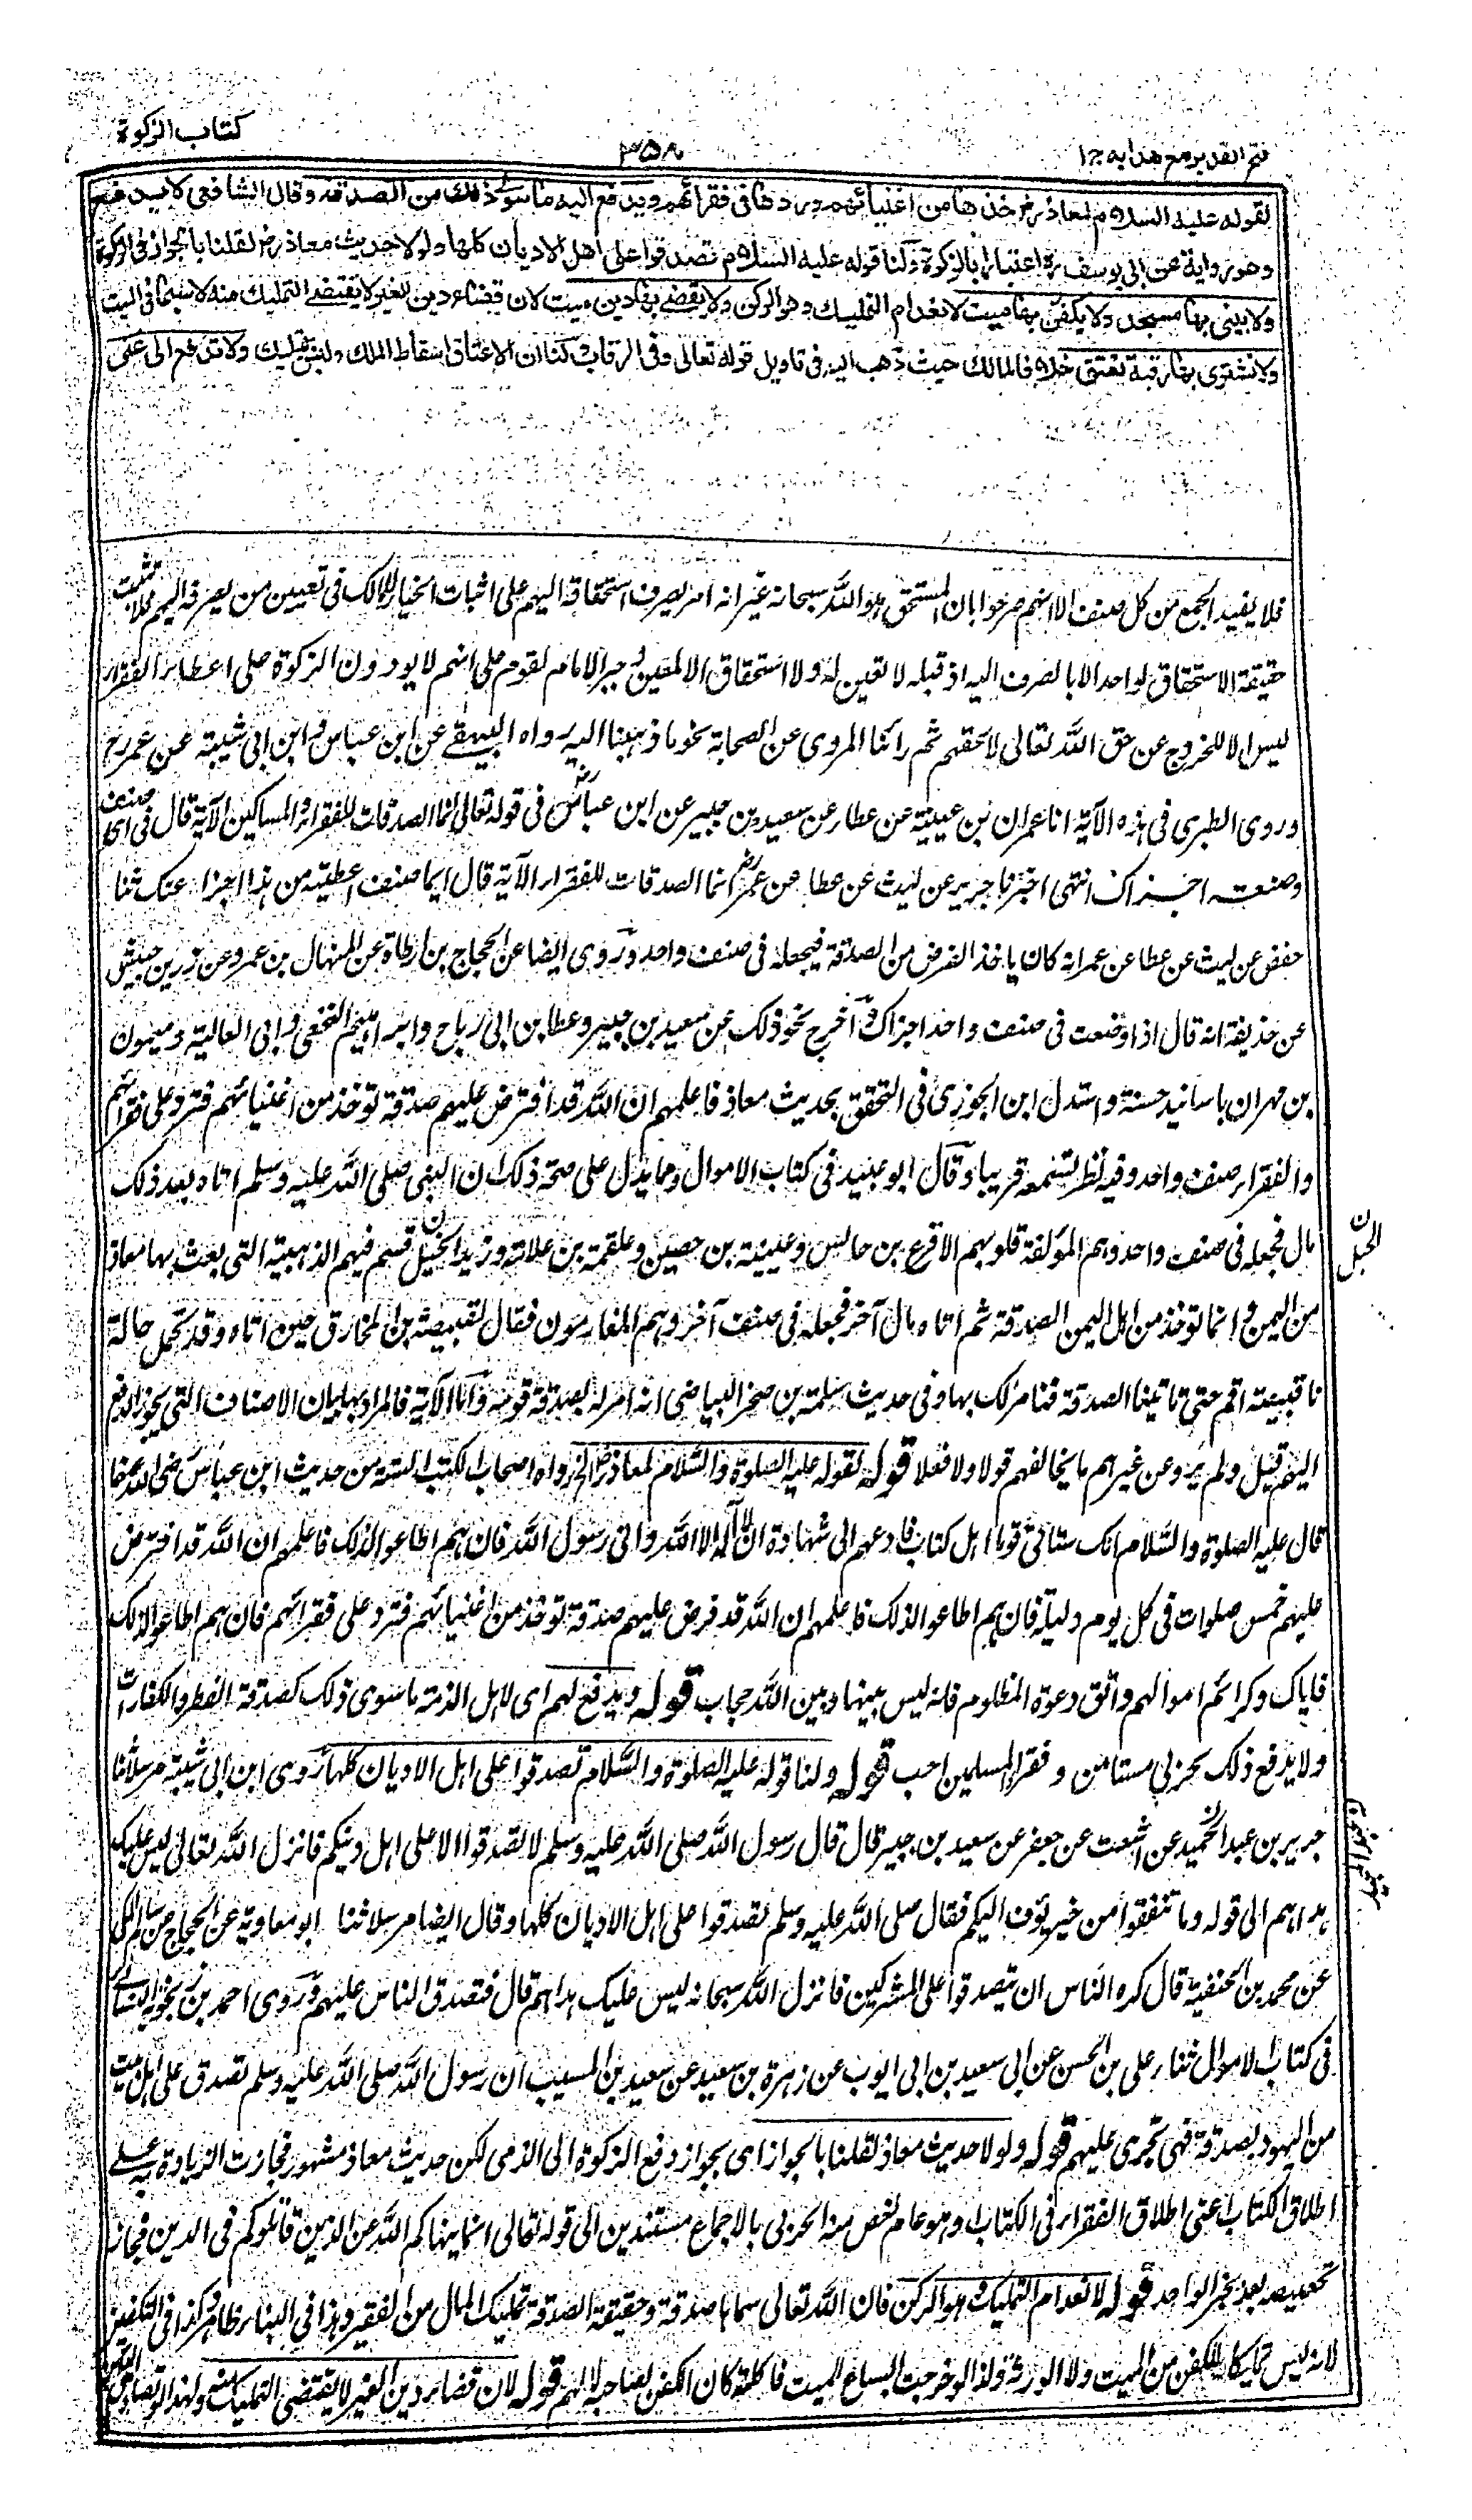 كتاب الزكوة
٣٥٨
فتح القدير مع هدايه ج١
لقوله عليه السلام لمعاذ رض خذها من اغنيائهم وردها فى فقرائهم ويدفع اليه ما سوى ذلك من الصدقة وقال الشافعى لا يدفع
وهو رواية عن ابى يوسف ره اعتبارا بالزكوة ولنا قوله عليه السلام تصدقوا على اهل الاديان كلها ولولا حديث معاذ رض لقلنا بالجواز فى الزكوة
ولا يبنى بها مسجد ولا يكفن بها ميت لانعدام التمليك وهو الركن ولا يقضے بها دين ميت لان قضاء دين الغير لا يقتضے التمليك منه لا سيما فى الميت
ولا تشترى بها رقبة تعتق خلافا لمالك حيث ذهب اليه فى تاويل قوله تعالى وفى الرقاب ولنا ان الاعتاق اسقاط الملك وليس بتمليك ولا تدفع الى غنى
فلا يفيد الجمع من كل صنف الا انهم صرحوا بان المستحق هو الله سبحانه غير انه امر بصرف استحقاقه اليهم على اثبات الخيار للمالك فى تعيين من يصرفه اليهم فلا تثبت
حقيقة الاستحقاق لواحد الا بالصرف اليه اذ قبله لا تعين له ولا استحقاق الا لمعين وجبر الامام لقوم على انهم لا يودون الزكوة على اعطاء الفقراء
ليس الا للخروج عن حق الله تعالى لا لحقهم ثم رأينا المروى عن الصحابة نحو ما ذهبنا اليه رواه البيهقے عن ابن عباس وابن ابى شيبة عن عمر رض
وروى الطبرى فى هذه الآية انا عمران بن عيينة عن عطاء عن سعيد بن جبير عن ابن عباس رض فى قوله تعالى انما الصدقات للفقراء والمساكين الآية قال فى اى صنف
وضعته اجزاك انتهى اخبرنا جرير عن ليث عن عطاء عن عمر رض انما الصدقات للفقراء الآية قال ايما صنف اعطيته من هذا اجزا عنك ثنا
حفص عن ليث عن عطا عن عمر انه كان ياخذ الفرض من الصدقة فيجعله فى صنف واحد وروى ايضا عن الحجاج بن ارطاة عن المنهال بن عمرو عن زر بن حبيش
عن حذيفة انه قال اذا وضعت فى صنف واحد اجزاك واخرج نحو ذلك عن سعيد بن جبير وعطا بن ابى رباح وابراهيم النخعى وابى العالية وميمون
بن مهران باسانيد حسنة واستدل ابن الجوزى فى التحقق بحديث معاذ فاعلمهم ان الله قد افترض عليهم صدقة توخذ من اغنيائهم فترد على فقرائهم
والفقراء صنف واحد وفيه نظر تسمعه قريبا وقال ابو عبيد فى كتاب الاموال ومما يدل على صحة ذلك ان النبى صلى الله عليه وسلم اتاه بعد ذلك
مال فجعله فى صنف واحد وهم المؤلفة قلوبهم الاقرع بن حابس وعيينة بن حصين وعلقمة بن علاثة وزيد الخيل ن قسم فيهم الذهبية التى بعث بها معاذ
ن
الجبل
من اليمن وانما توخذ من اهل اليمن الصدقة ثم اتاه مال آخر فجعله فى صنف آخر وهم الغارمون فقال لقبيصة بن المخارق حين اتاه وقد تحمل حمالة
يا قبيصة اقم حتى تاتينا الصدقة فنامر لك بها وفى حديث سلمة بن صخر البياضى انه امر له بصدقة قومه واما الآية فالمراد بها بيان الاصناف التى يجوز الدفع
اليهم قيل ولم يرو عن غيرهم ما يخالفهم قولا ولا فعلا قوله لقوله عليه الصلوة والسلام لمعاذ رض الخ رواه اصحاب الكتب الستة من حديث ابن عباس رضى الله عنهما
قال عليه الصلوة والسلام انك ستاتى قوما اهل كتاب فادعهم الى شهادة ان لا آله الا الله وانى رسول الله فان هم اطاعوا لذلك فاعلمهم ان الله قد افترض
عليهم خمس صلوات فى كل يوم وليلة فان هم اطاعوا لذلك فاعلمهم ان الله قد فرض عليهم صدقة توخذ من اغنيائهم فترد على فقرائهم فان هم اطاعوا لذلك
فاياك وكرائم اموالهم واتق دعوة المظلوم فانه ليس بينها وبين الله حجاب قوله ويدفع لهم اى لاهل الذمة ما سوى ذلك كصدقة الفطر والكفارات
ولا يدفع ذلك لحربي مستامن وفقراء المسلمين احب قوله ولنا قوله عليه الصلوة والسلام تصدقوا على اهل الاديان كلها روى ابن ابى شيبة مرسلا ثنا
جرير بن عبد الحميد ن عن اشعث عن جعفر عن سعيد بن جبير قال قال رسول الله صلى الله عليه وسلم لا تصدقوا الا على اهل دينكم فانزل الله تعالى ليس عليك
هداهم الى قوله وما تنفقوا من خير يوف اليكم فقال صلى الله عليه وسلم تصدقوا على اهل الاديان كلها وقال ايضا مرسلا ثنا ابو معاوية عن الحجاج عن سالم المكى
عن محمد بن الحنفية قال كره الناس ان يتصدقوا على المشركين فانزل الله سبحانه ليس عليك هداهم قال فتصدق الناس عليهم وروى احمد بن زنجويه النسائى
فى كتاب الاموال ثناء على بن الحسن عن ابى سعيد بن ابى ايوب عن زهرة بن سعيد عن سعيد بن المسيب ان رسول الله صلى الله عليه وسلم تصدق على اهل بيت
من اليهود بصدقة فهى تجرى عليهم قوله ولولا حديث معاذ لقلنا بالجواز اى بجواز دفع الزكوة الى الذمى لكن حديث معاذ مشهور فجازت الزيادة به علے
اطلاق الكتاب اعنى اطلاق الفقراء فى الكتاب وهو عام خص منه الحربى بالاجماع مستندين الى قوله تعالى انما ينهاكم الله عن الذين قاتلوكم فى الدين فجاز
تخصيصه بعد بخبر الواحد قوله لانعدام التمليك وهو الركن فان الله تعالى سماها صدقة وحقيقة الصدقة تمليك المال من الفقير وهذا فى البناء ظاهر وكذا فى التكفين
لانه ليس تمليكا للكفن من الميت ولا الورثة ولذا لو خرجت السباع الميت فاكلته كان الكفن لصاحبه لا لهم قوله لان قضاء دين الغير لا يقتضى التمليك منه ولهذا لو تصادق